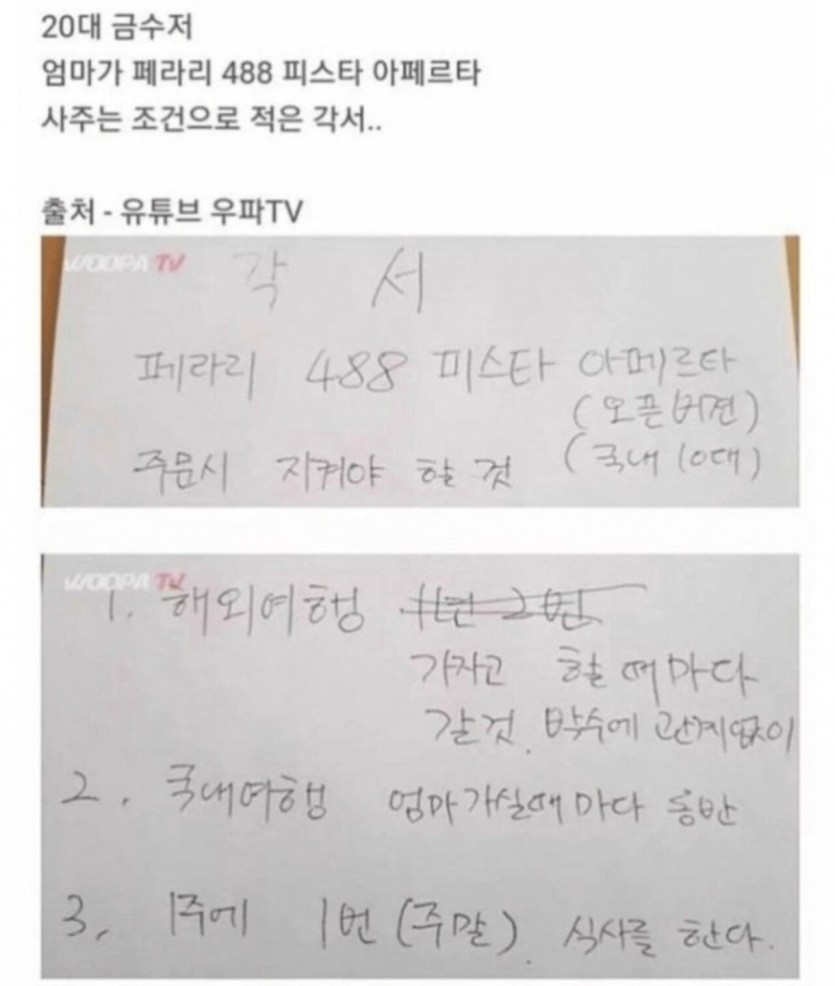 20대 금수저
엄마가 페라리 488 피스타 아페르타
사주는 조건으로 적은 각서..
출처 - 유튜브 우파TV
WOOPA TV
각 서
페라리 488 피스타 아페르타
(오픈버젼)
주문시 지켜야 할 것 (국내 10대)
WOOPA TV
1. 해외여행 1년 2번
가자고 할 때마다
갈것. 박수에 관계없이
2. 국내여행 엄마가실때 마다 동반
3. 1주에 1번 (주말). 식사를 한다.